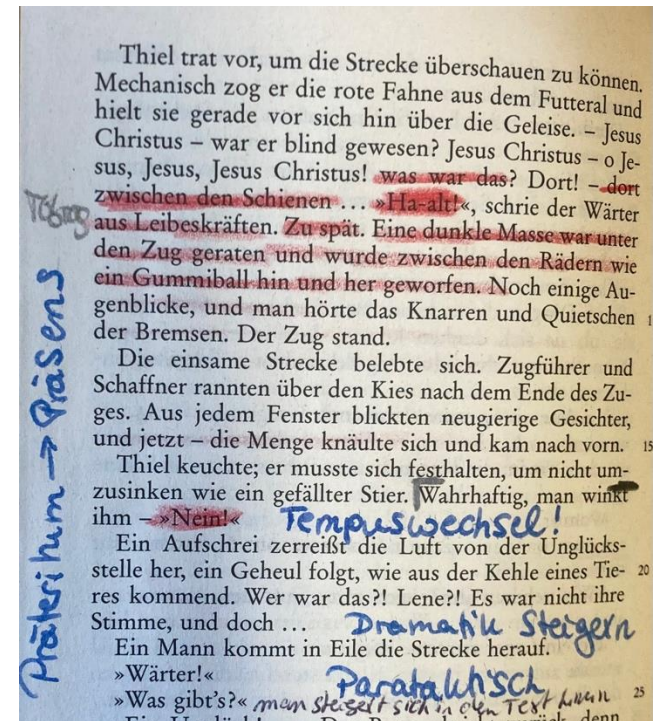 Thiel trat vor, um die Strecke überschauen zu können.
Mechanisch zog er die rote Fahne aus dem Futteral und
hielt sie gerade vor sich hin über die Geleise. – Jesus
Christus – war er blind gewesen? Jesus Christus – o Je-
sus, Jesus, Jesus Christus! was war das? Dort! – dort
zwischen den Schienen … »Ha-alt!«, schrie der Wärter
aus Leibeskräften. Zu spät. Eine dunkle Masse war unter
den Zug geraten und wurde zwischen den Rädern wie
ein Gummiball hin und her geworfen. Noch einige Au-
genblicke, und man hörte das Knarren und Quietschen 1
der Bremsen. Der Zug stand.
Die einsame Strecke belebte sich. Zugführer und
Schaffner rannten über den Kies nach dem Ende des Zu-
ges. Aus jedem Fenster blickten neugierige Gesichter,
und jetzt – die Menge knäulte sich und kam nach vorn. 15
Thiel keuchte; er musste sich festhalten, um nicht um-
zusinken wie ein gefällter Stier. Wahrhaftig, man winkt
ihm – »Nein!« Tempuswechsel!
Ein Aufschrei zerreißt die Luft von der Unglücks-
stelle her, ein Geheul folgt, wie aus der Kehle eines Tie- 20
res kommend. Wer war das?! Lene?! Es war nicht ihre
Stimme, und doch … Dramatik Steigern
Ein Mann kommt in Eile die Strecke herauf.
»Wärter!« Parataktisch
»Was gibt's?« man steigert sich in den Text hinein 25
Präteritum → Präsens